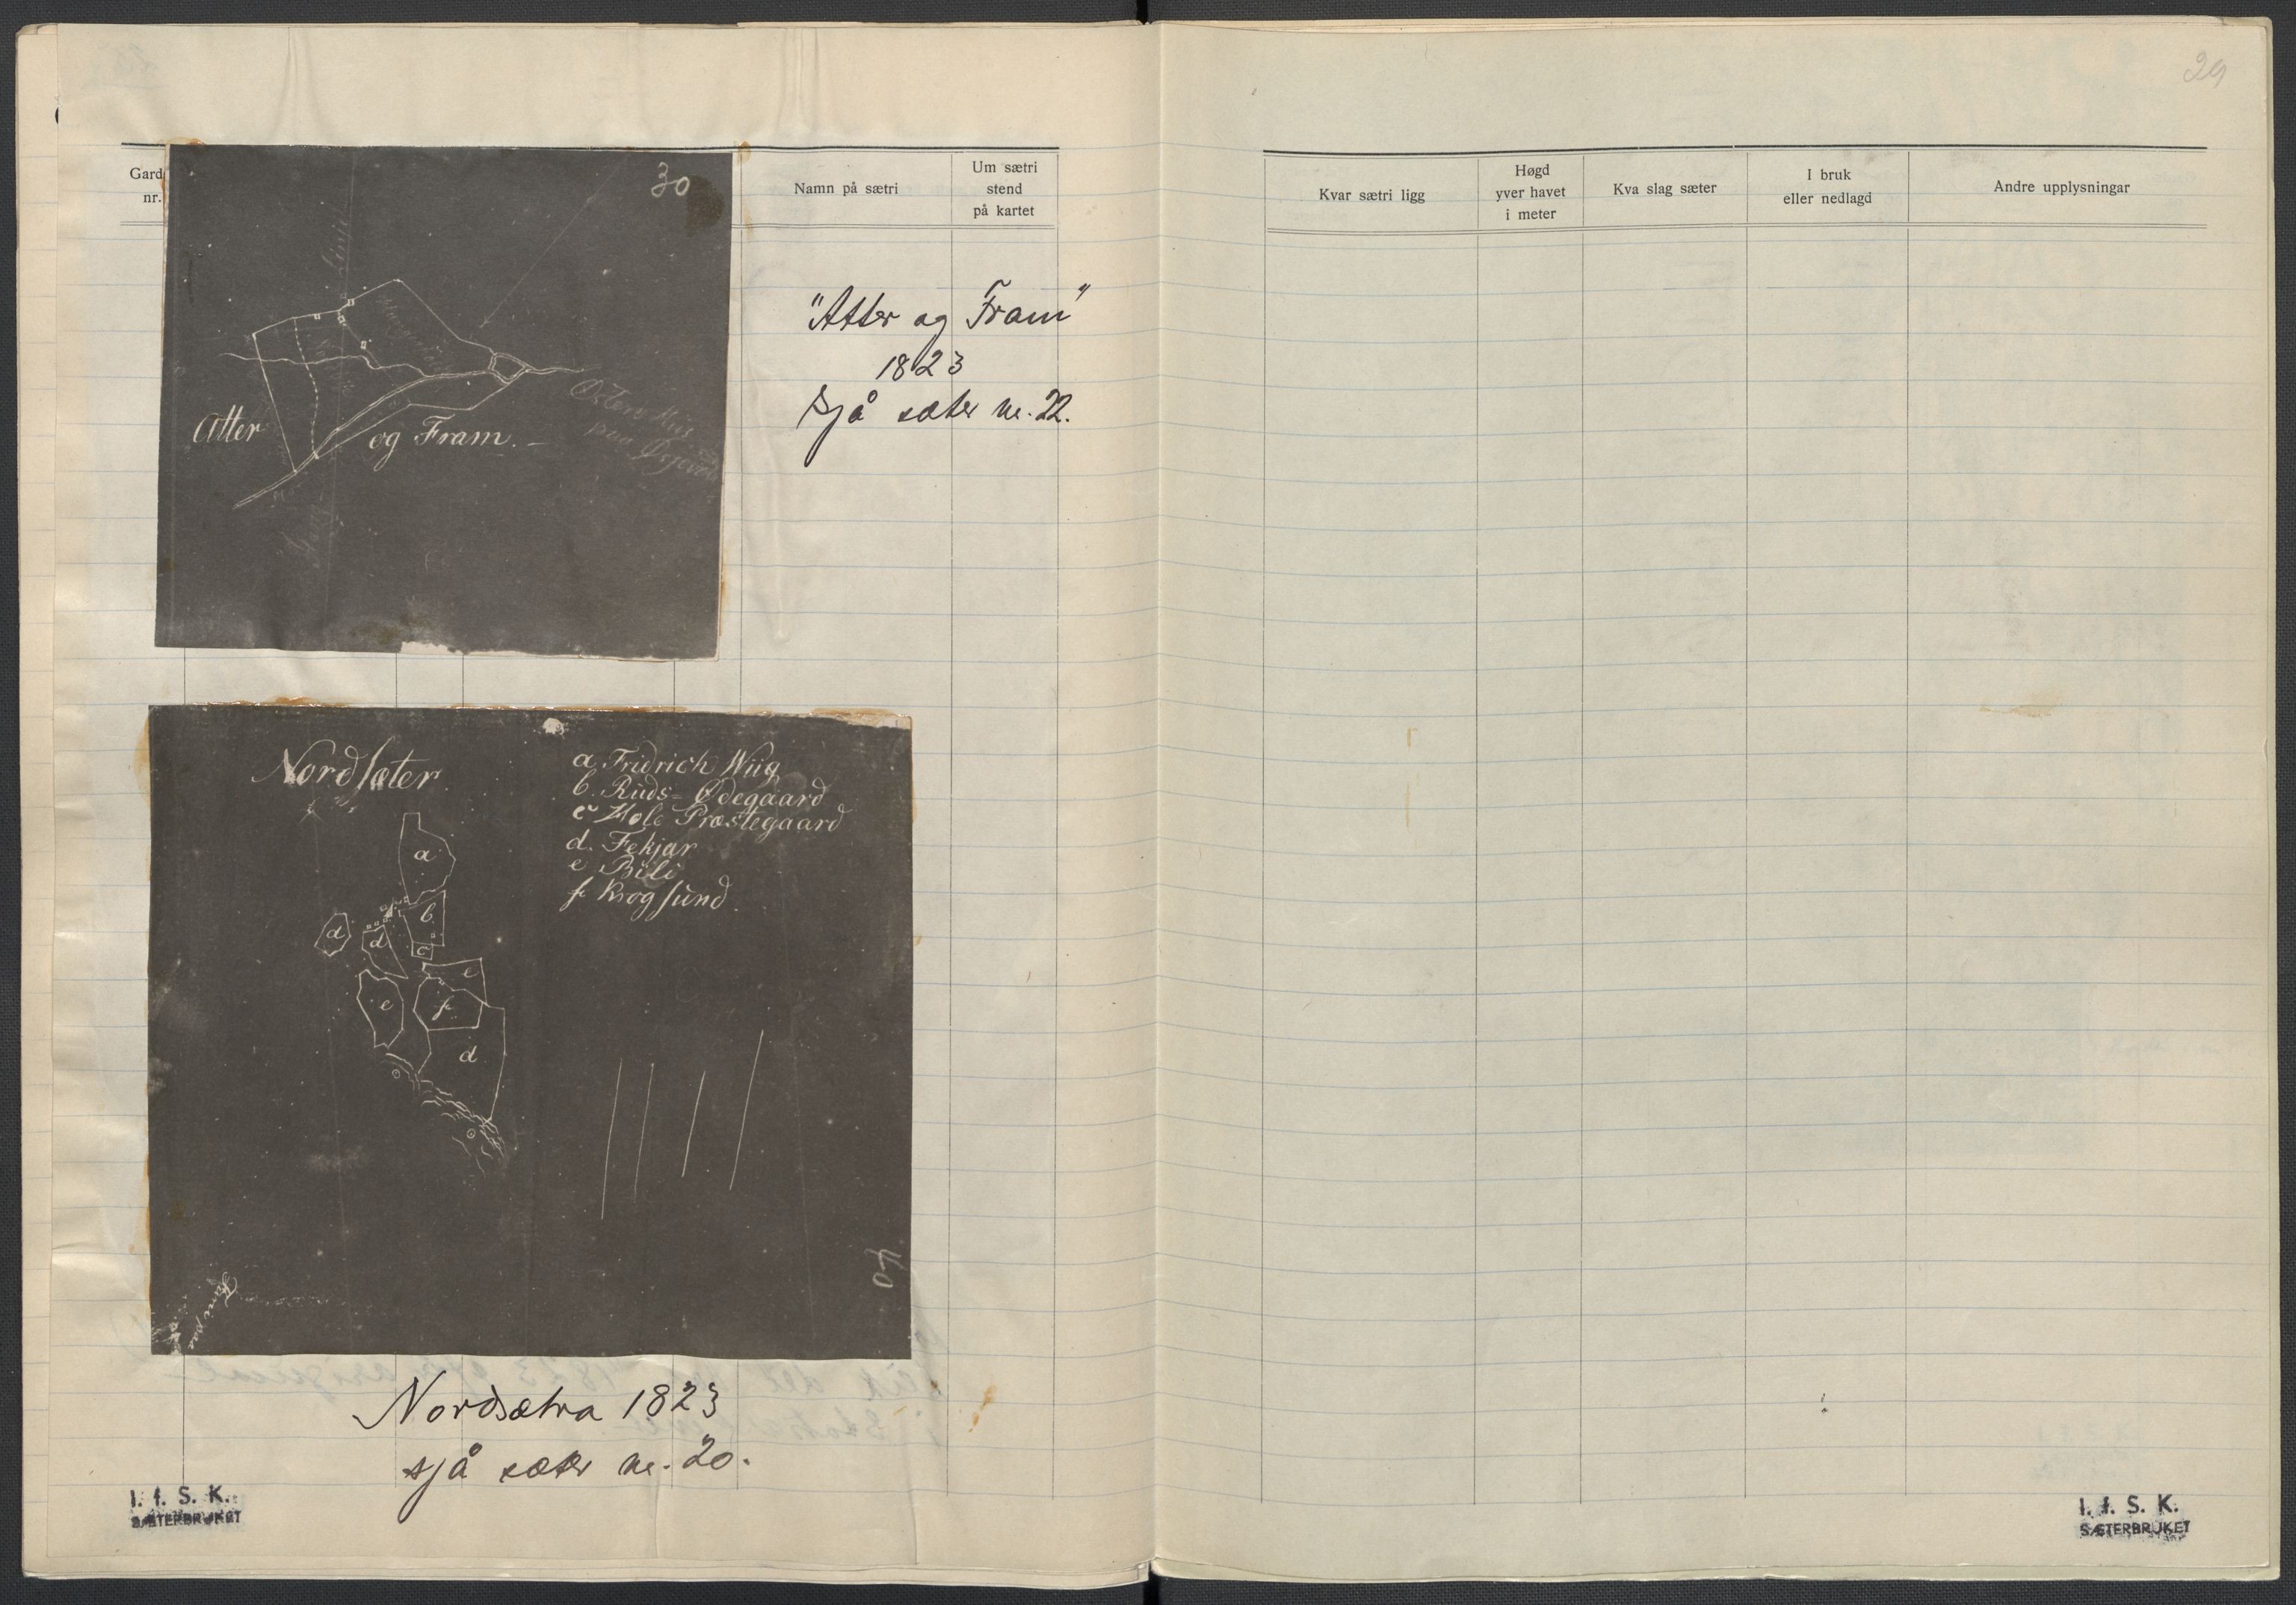 29
Gard
nr.
Namn på sætri
Um sætri
stend
på kartet
Kvar sætri ligg
Høgd
yver havet
i meter
Kva slag sæter
I bruk
eller nedlagd
Andre upplysningar
30
Atter og Fram.
Østen Huus
paa
"Atter og Fram"
1823
sjå sæter nr. 22.
Nordsæter
a Fridrich Wiig
b. Ruds-Ødegaard
c Hole Præstegaard
d. Fekjar
e Bili
f Krogsund
a
b
d
d
c
e
e
f
d
40
Nordsætra 1823
sjå sæter nr. 20.
I. f. S. K.
SÆTERBRUKET
I. f. S. K.
SÆTERBRUKET